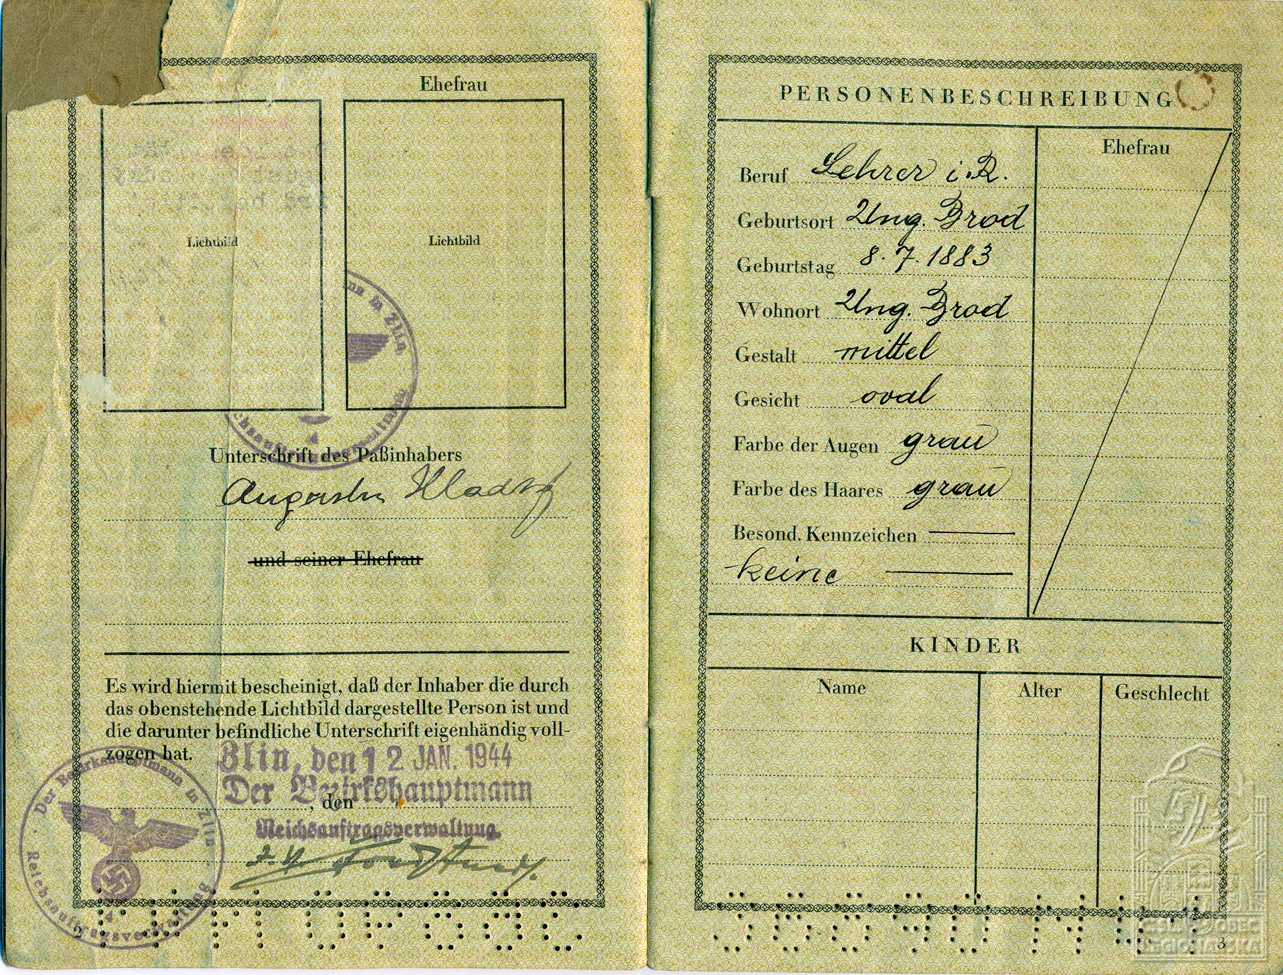 Ehefrau
Lichtbild
Lichtbild
Unterschrift des Paßinhabers
und seiner Ehefrau
Es wird hiermit bescheinigt, daß der Inhaber die durch
das obenstehende Lichtbild dargestellte Person ist und
die darunter befindliche Unterschrift eigenhändig voll-
zogen hat.
Zlin, den 12 JAN. 1944
Der Bezirkshauptmann
, den
Reichsauftragsverwaltung.
Der Bezirkshauptmann in Zlin
Reichsauftragsverwaltung
4
PERSONENBESCHREIBUNG
Ehefrau
Beruf Lehrer i.R.
Geburtsort Ung. Brod
Geburtstag 8.7.1883
Wohnort Ung. Brod
Gestalt mittel
Gesicht oval
Farbe der Augen grau
Farbe des Haares grau
Besond. Kennzeichen
keine
KINDER
Name Alter Geschlecht
ČS. OBEC
LEGIONÁŘSKÁ
3